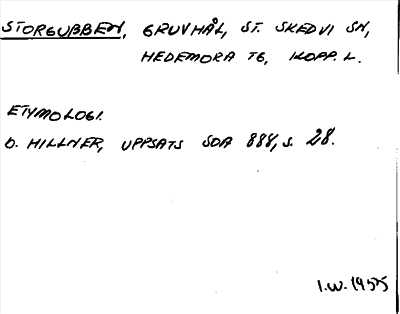 STORGUBBEN, GRUVHÅL, ST. SKEDVI SN,
HEDEMORA TG, KOPP. L.
ETYMOLOGI.
O. HILLNER, UPPSATS SOA 888, S. 28.
I.W. 1955